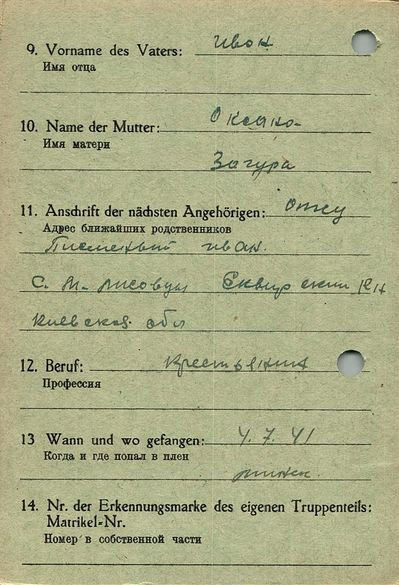 9. Vorname des Vaters: Ивон
Имя отца
10. Name der Mutter: Оксана
Имя матери
Загура
11. Anschrift der nächsten Angehörigen: отцу
Адрес ближайших родственников
Писменый иван.
С. М. Лисовцы Сквирский р-н
Киевская обл
12. Beruf: Крестьянин
Профессия
13 Wann und wo gefangen: 4. 7. 41
Когда и где попал в плен
14. Nr. der Erkennungsmarke des eigenen Truppenteils:
Matrikel-Nr.
Номер в собственной части